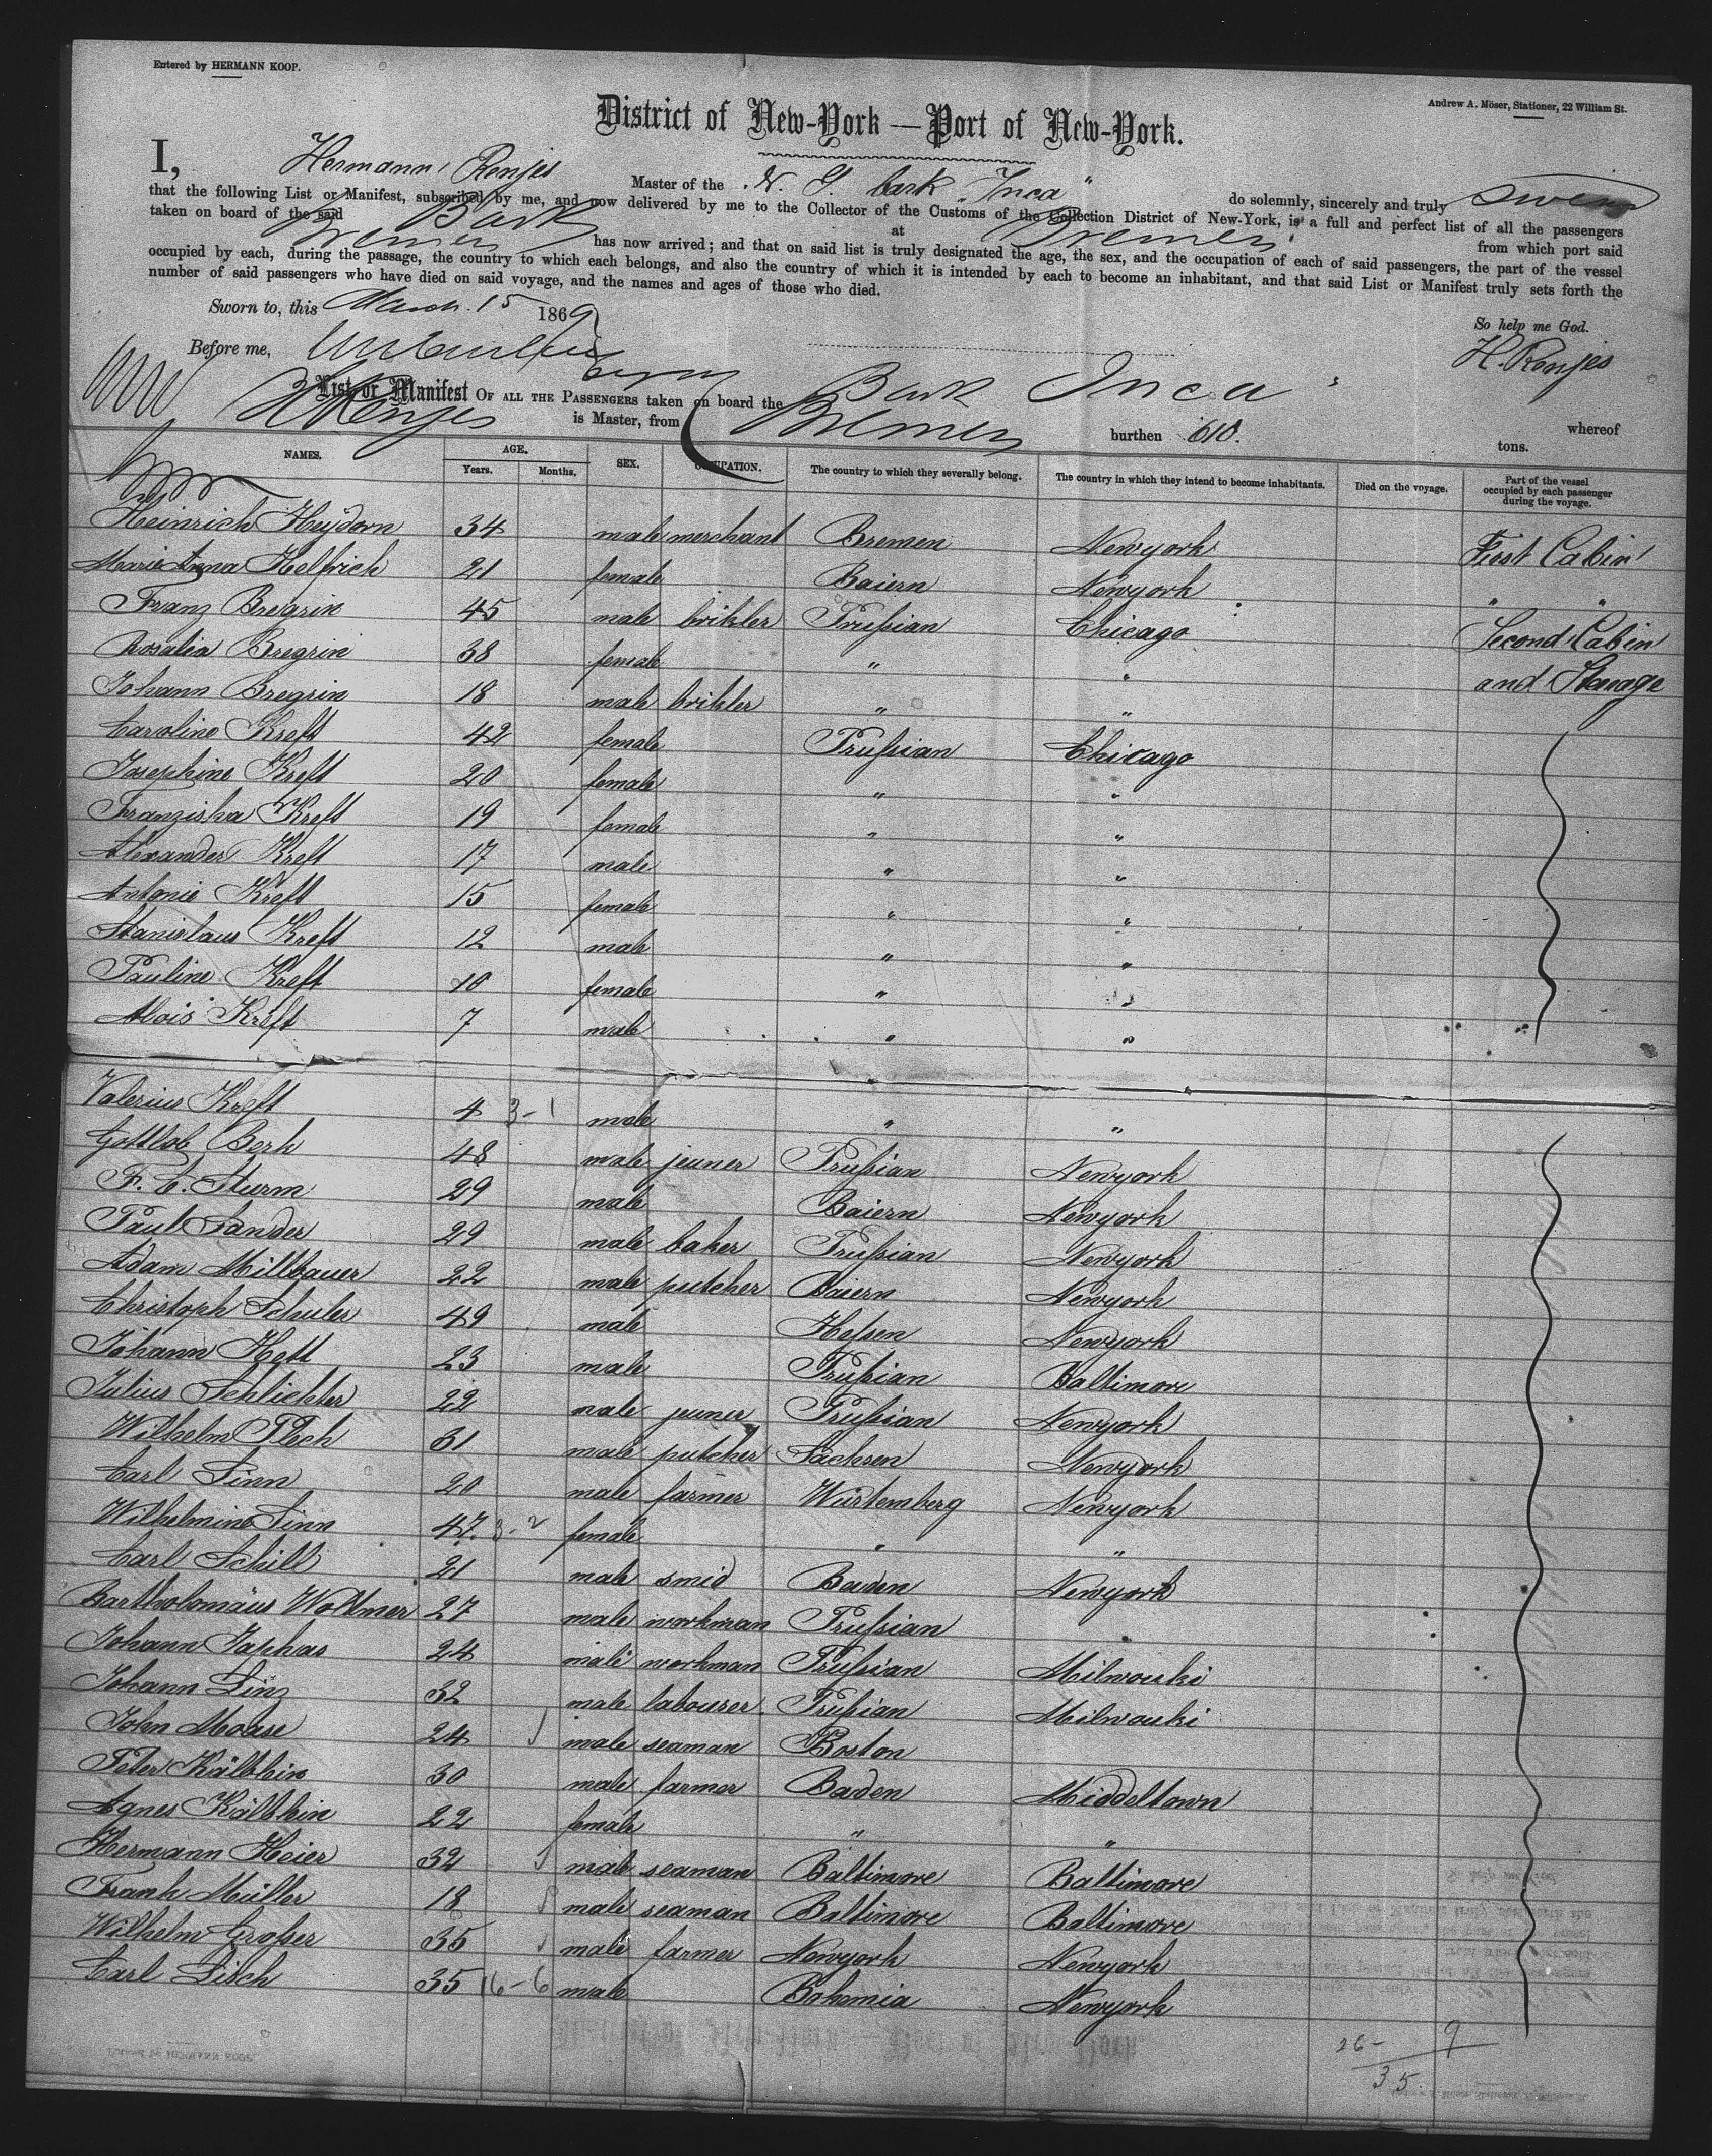 Entered by HERMANN KOOP.
Andrew A. Möser, Stationer, 22 William St.
District of New-York — Port of New-York.
I, Hermann Renjes Master of the N. G. bark "Inca" do solemnly, sincerely and truly swear
that the following List or Manifest, subscribed by me, and now delivered by me to the Collector of the Customs of the Collection District of New-York, is a full and perfect list of all the passengers
taken on board of the said Bark at Bremen from which port said
Bremen has now arrived; and that on said list is truly designated the age, the sex, and the occupation of each of said passengers, the part of the vessel
occupied by each, during the passage, the country to which each belongs, and also the country of which it is intended by each to become an inhabitant, and that said List or Manifest truly sets forth the
number of said passengers who have died on said voyage, and the names and ages of those who died.
Sworn to, this March 15 1869
So help me God.
Before me,
H. Renjes
List or Manifest OF ALL THE PASSENGERS taken on board the Bark Inca whereof
H Renjes is Master, from Bremen burthen 610. tons.
NAMES. AGE. Years. Months. SEX. OCCUPATION. The country to which they severally belong. The country in which they intend to become inhabitants. Died on the voyage. Part of the vessel occupied by each passenger during the voyage.
Heinrich Heydorn 34 male merchant Bremen Newyork First Cabin
Marie Anna Helfrich 21 female Baiern Newyork " "
Franz Bregrin 45 male brikler Prußian Chicago Second Cabin
Rosalia Bregrin 38 female " " and Sterage
Johann Bregrin 18 male brikler " "
Caroline Kreft 42 female Prußian Chicago
Josephine Kreft 20 female " "
Franziska Kreft 19 female " "
Alexander Kreft 17 male " "
Antonie Kreft 15 female " "
Stanislaus Kreft 12 male " "
Pauline Kreft 10 female " "
Alois Kreft 7 male " "
Valerius Kreft 4 3-1 male " "
Gottlob Berh 48 male jeuner Prußian Newyork
F. C. Sturm 29 male Baiern Newyork
Paul Sander 29 male baker Prußian Newyork
Adam Millbauer 22 male putcher Baiern Newyork
Christoph Schuler 49 male Heßen Newyork
Johann Hett 23 male Prußian Baltimore
Julius Schlichter 22 male jeuner Prußian Newyork
Wilhelm Plech 31 male putcher Sachsen Newyork
Carl Sinn 20 male farmer Würtemberg Newyork
Wilhelmine Sinn 47 3-2 female " "
Carl Schill 21 male smid Baden Newyork
Bartholomäus Woltmer 27 male workman Prußian "
Johann Japhas 24 male workman Prußian Milwouki
Johann Linz 32 male labourer Prußian Milwouki
John Moase 24 male seaman Boston
Peter Kälbhin 30 male farmer Baden Middeltown
Agnes Kälbhin 22 female " "
Hermann Heier 32 male seaman Baltimore Baltimore
Frank Müller 18 male seaman Baltimore Baltimore
Wilhelm Großer 35 male farmer Newyork Newyork
Carl Lisch 35 16-6 male Bohemia Newyork
26- 9
35